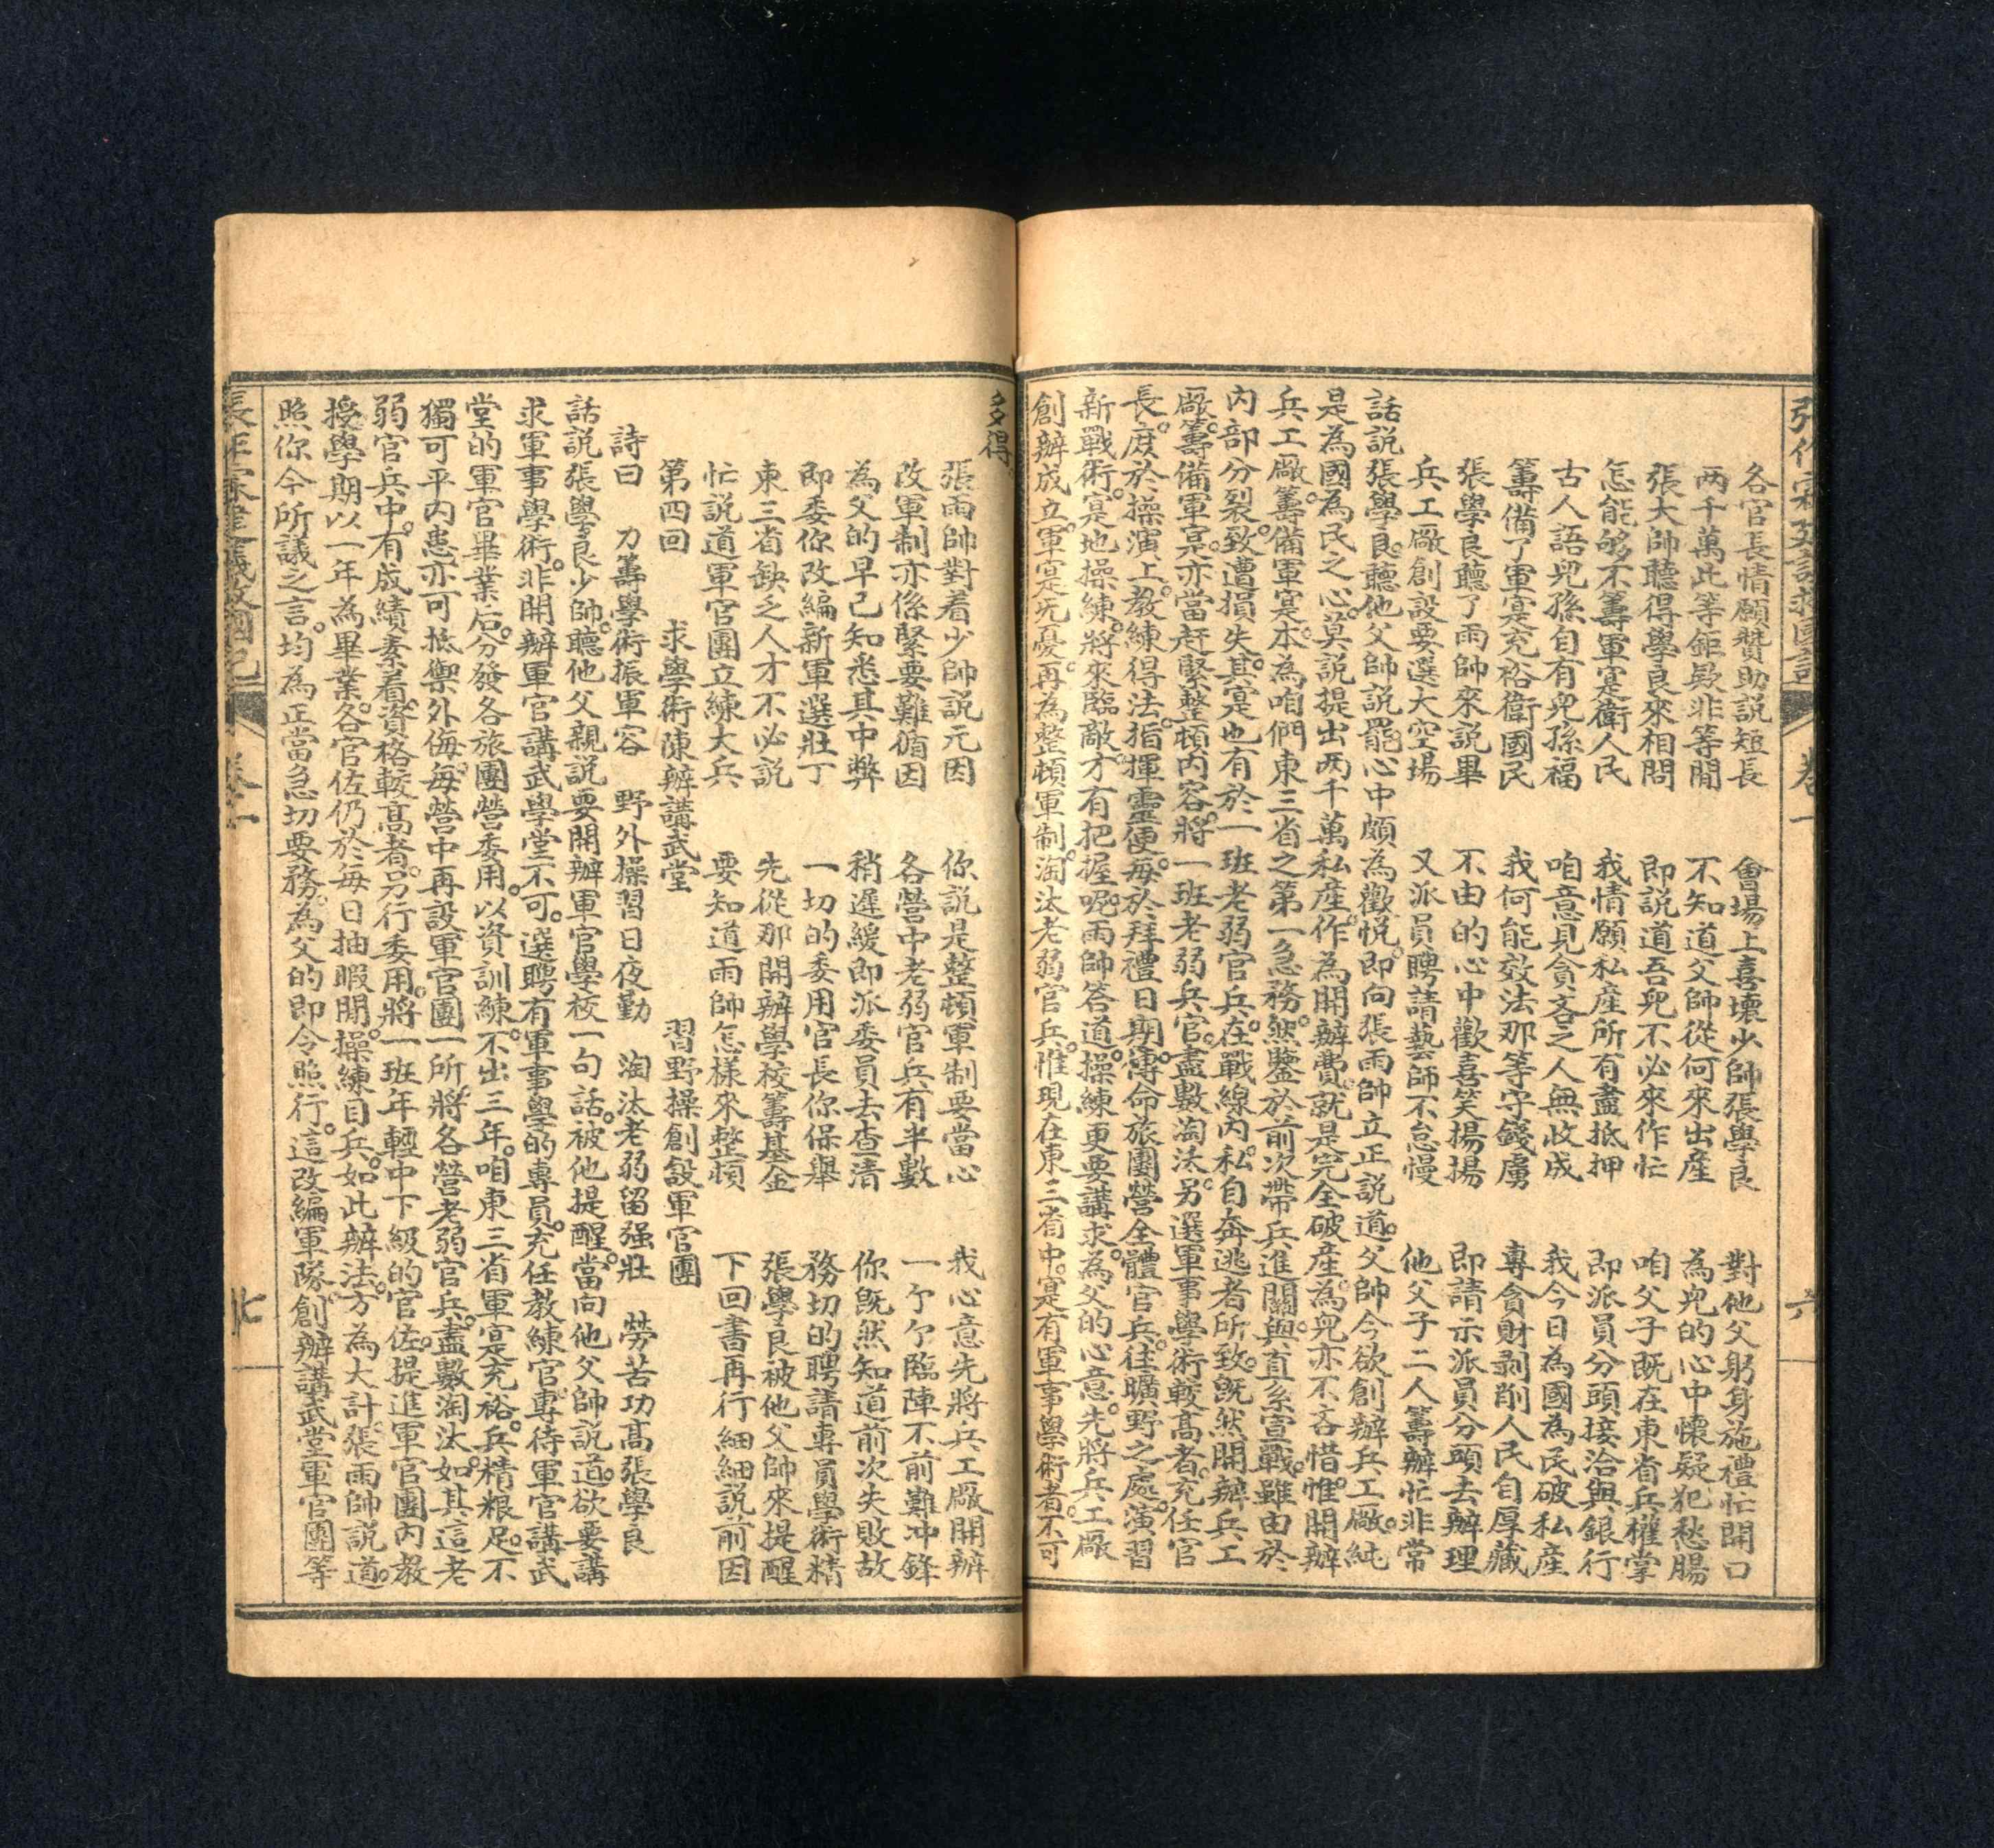 各官長情願贊助說短長　會場上喜壞少帥張學良　對他父躬身施禮忙開口
兩千萬此等鉅欵非等閒　不知道父帥從何來出產　為兒的心中懷疑犯愁腸
張大帥聽得學良來相問　即說道吾兒不必來作忙　咱父子既在東省兵權掌
怎能够不籌軍寔衛人民　我情願私產所有盡抵押　即派員分頭接洽與銀行
古人語兒孫自有兒孫福　咱意見貪吝之人無收成　我今日為國為民破私產
籌備了軍寔充裕衛國民　我何能效法那等守錢虜　專貪財剥削人民自厚藏
張學良聽了雨帥來說畢　不由的心中歡喜笑揚揚　即請示派員分頭去辦理
兵工廠創設要選大空場　又派員聘請藝師不怠慢　他父子二人籌辦忙非常
話說張學良。聽他父帥說罷。心中頗為歡悅。即向張雨帥立正說道。父帥今欲創辦兵工廠。純
是為國為民之心。莫說提出兩千萬私產。作為開辦費。就是完全破產。為兒亦不吝惜。惟開辦
兵工廠。籌備軍寔。本為咱們東三省之第一急務。然鑒於前次帶兵進關。與直系宣戰。雖由於
內部分裂。致遭損失。其寔也有於一班老弱官兵。在戰線內。私自奔逃者所致。旣然開辦兵工
廠。籌備軍寔。亦當赶緊整頓內容。將一班老弱兵官。盡數淘汰。另選軍事學術較高者。充任官
長。庶於操演上。教練得法。指揮靈便。每於拜禮日期。傳命旅團營全體官兵。往曠野之處。演習
新戰術。寔地操練。將來臨敵。才有把握呢。雨帥答道。操練更要講求。為父的心意。先將兵工廠
創辦成立。軍寔旡憂。再為整頓軍制。淘汰老弱官兵。惟現在東三省中。寔有軍事學術者。不可
多得。
張雨帥對着少帥說元因　你說是整頓軍制要當心　我心意先將兵工廠開辦
改軍制亦係緊要難循因　各營中老弱官兵有半數　一个个臨陣不前難冲鋒
為父的早已知悉其中弊　稍遲緩即派委員去查清　你旣然知道前次失敗故
即委你改編新軍選壯丁　一切的委用官長你保舉　務切的聘請專員學術精
東三省缺之人才不必說　先從那開辦學校籌基金　張學良被他父帥來提醒
忙說道軍官團立練大兵　要知道雨帥怎樣來整頓　下回書再行細細說前因
第四回　求學術陳辦講武堂　習野操創設軍官團
詩曰　力籌學術振軍容　野外操習日夜勤　淘汰老弱留强壯　勞苦功高張學良
話說張學良少帥。聽他父親說要開辦軍官學校一句話。被他提醒。當向他父帥說道。欲要講
求軍事學術。非開辦軍官講武學堂不可。選聘有軍事學的專員。充任教練官。專待軍官講武
堂的軍官畢業后。分發各旅團營委用。以資訓練。不出三年。咱東三省軍寔充裕。兵精粮足。不
獨可平內患。亦可抵禦外侮。每營中再設軍官團一所。將各營老弱官兵。盡數淘汰。如其這老
弱官兵中。有成績素着。資格較高者。另行委用。將一班年輕中下級的官佐。提進軍官團內。教
授學期以一年為畢業。各官佐仍於每日抽暇閒。操練目兵。如此辦法。方為大計。張雨帥說道。
照你今所議之言。均為正當急切要務。為父的即令照行。這改編軍隊。創辦講武堂軍官團等
卷一
六
七